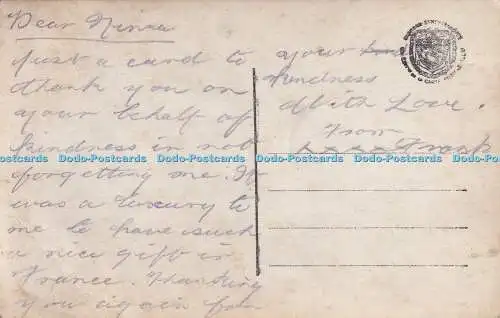 Dear Ninia
Just a card to
thank you on
your behalf of
kindness in not
forgetting me. It
was a luxury to
me to have such
a nice gift in
France. Thanking
you again for
your
kindness
With Love.
From
xxxx Frank
Dodo-Postcards Dodo-Postcards Dodo-Postcards Dodo-Postcards Dodo-Postcards